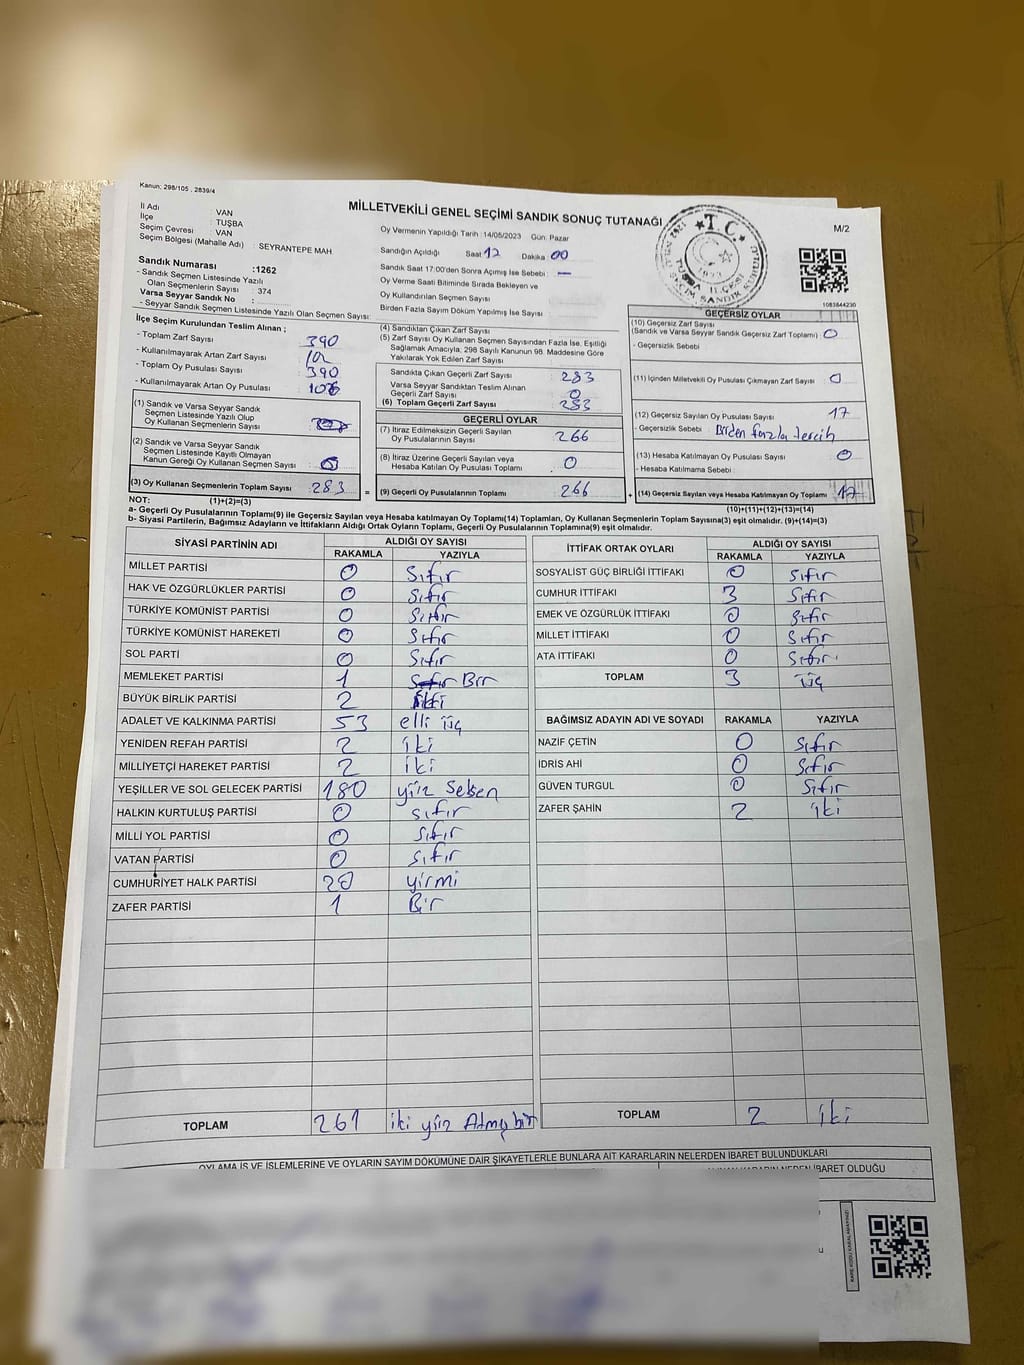 Kanun: 298/105 , 2839/4
MİLLETVEKİLİ GENEL SEÇİMİ SANDIK SONUÇ TUTANAĞI
M/2
İl Adı : VAN
İlçe : TUŞBA
Seçim Çevresi : VAN
Seçim Bölgesi (Mahalle Adı) : SEYRANTEPE MAH
Sandık Numarası :1262
- Sandık Seçmen Listesinde Yazılı
Olan Seçmenlerin Sayısı : 374
Varsa Seyyar Sandık No :
- Seyyar Sandık Seçmen Listesinde Yazılı Olan Seçmen Sayısı:
Oy Vermenin Yapıldığı Tarih : 14/05/2023 Gün: Pazar
Sandığın Açıldığı Saat 17 Dakika 00
Sandık Saat 17:00'den Sonra Açılmış İse Sebebi : —
Oy Verme Saati Bitiminde Sırada Bekleyen ve
Oy Kullandırılan Seçmen Sayısı
Birden Fazla Sayım Döküm Yapılmış İse Sayısı :
T.C.
TUŞBA İLÇESİ
1923
1083844230
İlçe Seçim Kurulundan Teslim Alınan ;
- Toplam Zarf Sayısı : 390
- Kullanılmayarak Artan Zarf Sayısı :
- Toplam Oy Pusulası Sayısı : 390
- Kullanılmayarak Artan Oy Pusulası :
(1) Sandık ve Varsa Seyyar Sandık
Seçmen Listesinde Yazılı Olup
Oy Kullanan Seçmenlerin Sayısı :
(2) Sandık ve Varsa Seyyar Sandık
Seçmen Listesinde Kayıtlı Olmayan
Kanun Gereği Oy Kullanan Seçmen Sayısı : 0
(3) Oy Kullanan Seçmenlerin Toplam Sayısı : 283 =
(4) Sandıktan Çıkan Zarf Sayısı
(5) Zarf Sayısı Oy Kullanan Seçmen Sayısından Fazla İse, Eşitliği
Sağlamak Amacıyla, 298 Sayılı Kanunun 98. Maddesine Göre
Yakılarak Yok Edilen Zarf Sayısı
Sandıkta Çıkan Geçerli Zarf Sayısı : 283
Varsa Seyyar Sandıktan Teslim Alınan
Geçerli Zarf Sayısı : 0
(6) Toplam Geçerli Zarf Sayısı : 283
GEÇERLİ OYLAR
(7) İtiraz Edilmeksizin Geçerli Sayılan
Oy Pusulalarının Sayısı : 266
(8) İtiraz Üzerine Geçerli Sayılan veya
Hesaba Katılan Oy Pusulası Toplamı : 0
(9) Geçerli Oy Pusulalarının Toplamı : 266 +
GEÇERSİZ OYLAR
(10) Geçersiz Zarf Sayısı
(Sandık ve Varsa Seyyar Sandık Geçersiz Zarf Toplamı) : 0
- Geçersizlik Sebebi :
(11) İçinden Milletvekili Oy Pusulası Çıkmayan Zarf Sayısı : 0
(12) Geçersiz Sayılan Oy Pusulası Sayısı : 17
- Geçersizlik Sebebi : Birden fazla tercih
(13) Hesaba Katılmayan Oy Pusulası Sayısı : 0
- Hesaba Katılmama Sebebi :
(14) Geçersiz Sayılan veya Hesaba Katılmayan Oy Toplamı : 17
NOT: (1)+(2)=(3) (10)+(11)+(12)+(13)=(14)
a- Geçerli Oy Pusulasının Toplamı(9) ile Geçersiz Sayılan veya Hesaba katılmayan Oy Toplamı(14) Toplamları, Oy Kullanan Seçmenlerin Toplam Sayısına(3) eşit olmalıdır. (9)+(14)=(3)
b- Siyasi Partilerin, Bağımsız Adayların ve İttifakların Aldığı Ortak Oyların Toplamı, Geçerli Oy Pusulasının Toplamına(9) eşit olmalıdır.
SİYASİ PARTİNİN ADI ALDIĞI OY SAYISI
RAKAMLA YAZIYLA
MİLLET PARTİSİ 0 Sıfır
HAK VE ÖZGÜRLÜKLER PARTİSİ 0 Sıfır
TÜRKİYE KOMÜNİST PARTİSİ 0 Sıfır
TÜRKİYE KOMÜNİST HAREKETİ 0 Sıfır
SOL PARTİ 0 Sıfır
MEMLEKET PARTİSİ 1 Bir
BÜYÜK BİRLİK PARTİSİ 2 iki
ADALET VE KALKINMA PARTİSİ 53 elli üç
YENİDEN REFAH PARTİSİ 2 iki
MİLLİYETÇİ HAREKET PARTİSİ 2 iki
YEŞİLLER VE SOL GELECEK PARTİSİ 180 yüz Seksen
HALKIN KURTULUŞ PARTİSİ 0 sıfır
MİLLİ YOL PARTİSİ 0 sıfır
VATAN PARTİSİ 0 sıfır
CUMHURİYET HALK PARTİSİ 20 yirmi
ZAFER PARTİSİ 1 Bir
TOPLAM 261 iki yüz Atmış bir
İTTİFAK ORTAK OYLARI ALDIĞI OY SAYISI
RAKAMLA YAZIYLA
SOSYALİST GÜÇ BİRLİĞİ İTTİFAKI 0 Sıfır
CUMHUR İTTİFAKI 3 Sıfır
EMEK VE ÖZGÜRLÜK İTTİFAKI 0 Sıfır
MİLLET İTTİFAKI 0 Sıfır
ATA İTTİFAKI 0 Sıfır
TOPLAM 3 üç
BAĞIMSIZ ADAYIN ADI VE SOYADI RAKAMLA YAZIYLA
NAZİF ÇETİN 0 Sıfır
İDRİS AHİ 0 Sıfır
GÜVEN TURGUL 0 Sıfır
ZAFER ŞAHİN 2 iki
TOPLAM 2 iki
OYLAMA İŞ VE İŞLEMLERİNE VE OYLARIN SAYIM DÖKÜMÜNE DAİR ŞİKAYETLERLE BUNLARA AİT KARARLARIN NELERDEN İBARET BULUNDUKLARI
NEDEN İBARET OLDUĞU
KARE KODU KARALAMAYINIZ!